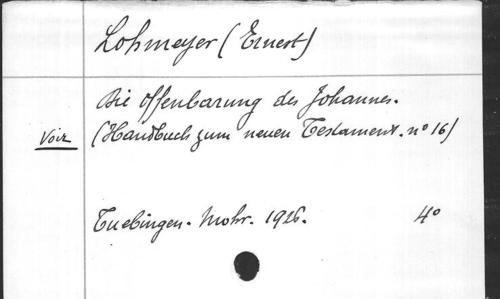 Lohmeyer (Ernest)
Die Offenbarung des Johannes.
Voir (Handbuch zum neuen Testament. n° 16)
Tuebingen. Mohr. 1926. 4°